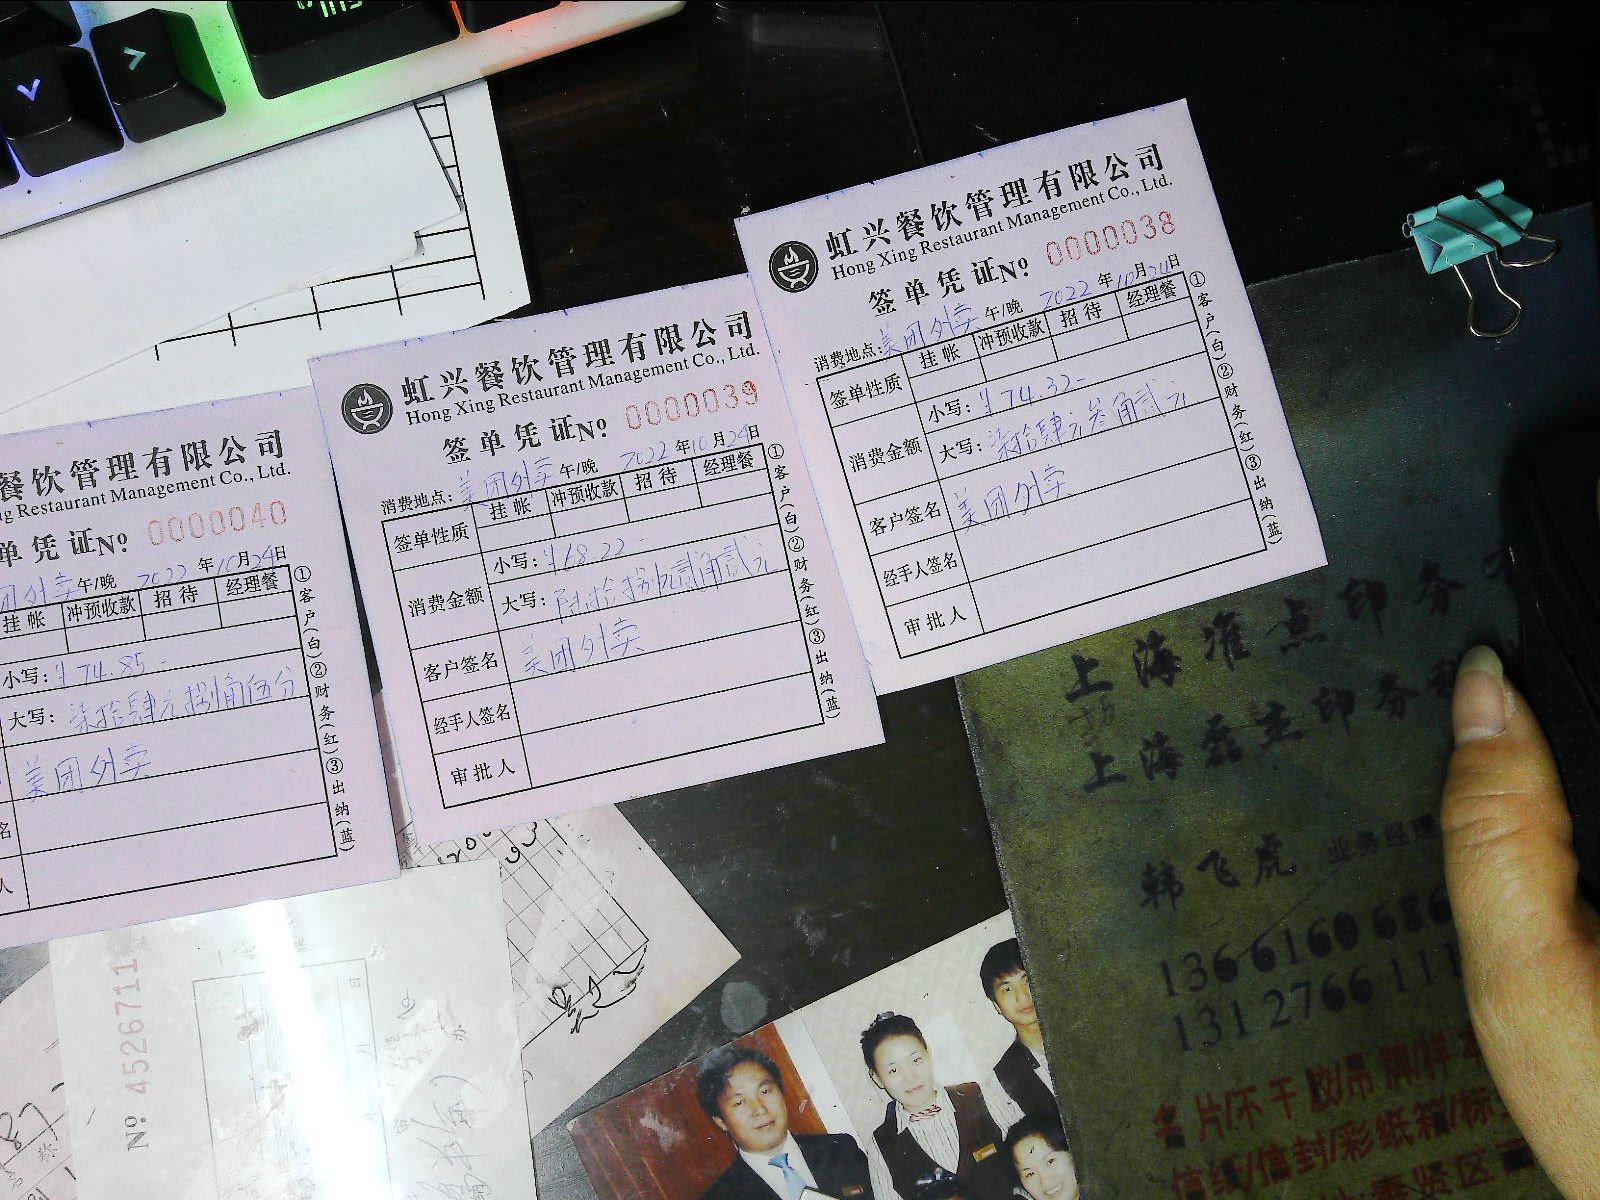 虹兴餐饮管理有限公司
Hong Xing Restaurant Management Co., Ltd.
签单凭证№ 0000038
消费地点:美团外卖 午/晚 2022年10月24日
签单性质 挂帐 冲预收款 招待 经理餐
消费金额 小写:¥74.32-
大写:柒拾肆元叁角贰元
客户签名 美团外卖
经手人签名
审批人
①客户(白)②财务(红)③出纳(蓝)
虹兴餐饮管理有限公司
Hong Xing Restaurant Management Co., Ltd.
签单凭证№ 0000039
消费地点:美团外卖 午/晚 2022年10月24日
签单性质 挂帐 冲预收款 招待 经理餐
消费金额 小写:¥68.22-
大写:陆拾捌元贰角贰元
客户签名 美团外卖
经手人签名
审批人
①客户(白)②财务(红)③出纳(蓝)
餐饮管理有限公司
ng Restaurant Management Co., Ltd.
单凭证№ 0000040
团外卖 午/晚 2022年10月24日
挂帐 冲预收款 招待 经理餐
小写:¥74.85-
大写:柒拾肆元捌角伍分
美团外卖
名
人
①客户(白)②财务(红)③出纳(蓝)
上海准点印务
上海磊杰印务
韩飞虎 业务经理
136 6160 686
131 2766 111
名片/不干胶/吊牌/样本
信纸/信封/彩纸箱/标
奉贤区
№ 4526711